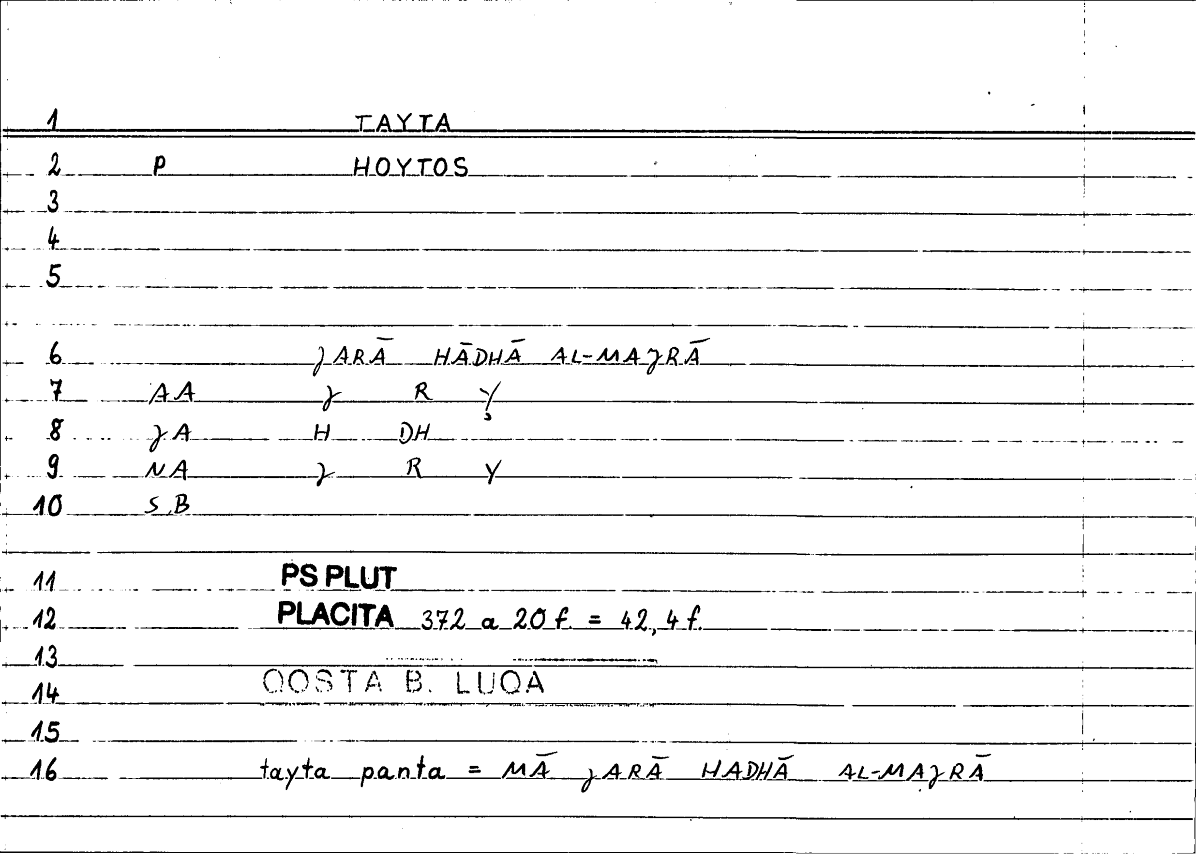 1 TAYTA
2 P HOYTOS
3
4
5
6 ȷARĀ HĀDHĀ AL-MAȷRĀ
7 AA ȷ R Y̩
8 ȷA H DH
9 NA ȷ R Y
10 S.B
11 PS PLUT
12 PLACITA 372 a 20 f. = 42,4 f.
13
14 QOSTA B. LUQA
15
16 tayta panta = MĀ ȷARĀ HADHĀ AL-MAȷRĀ